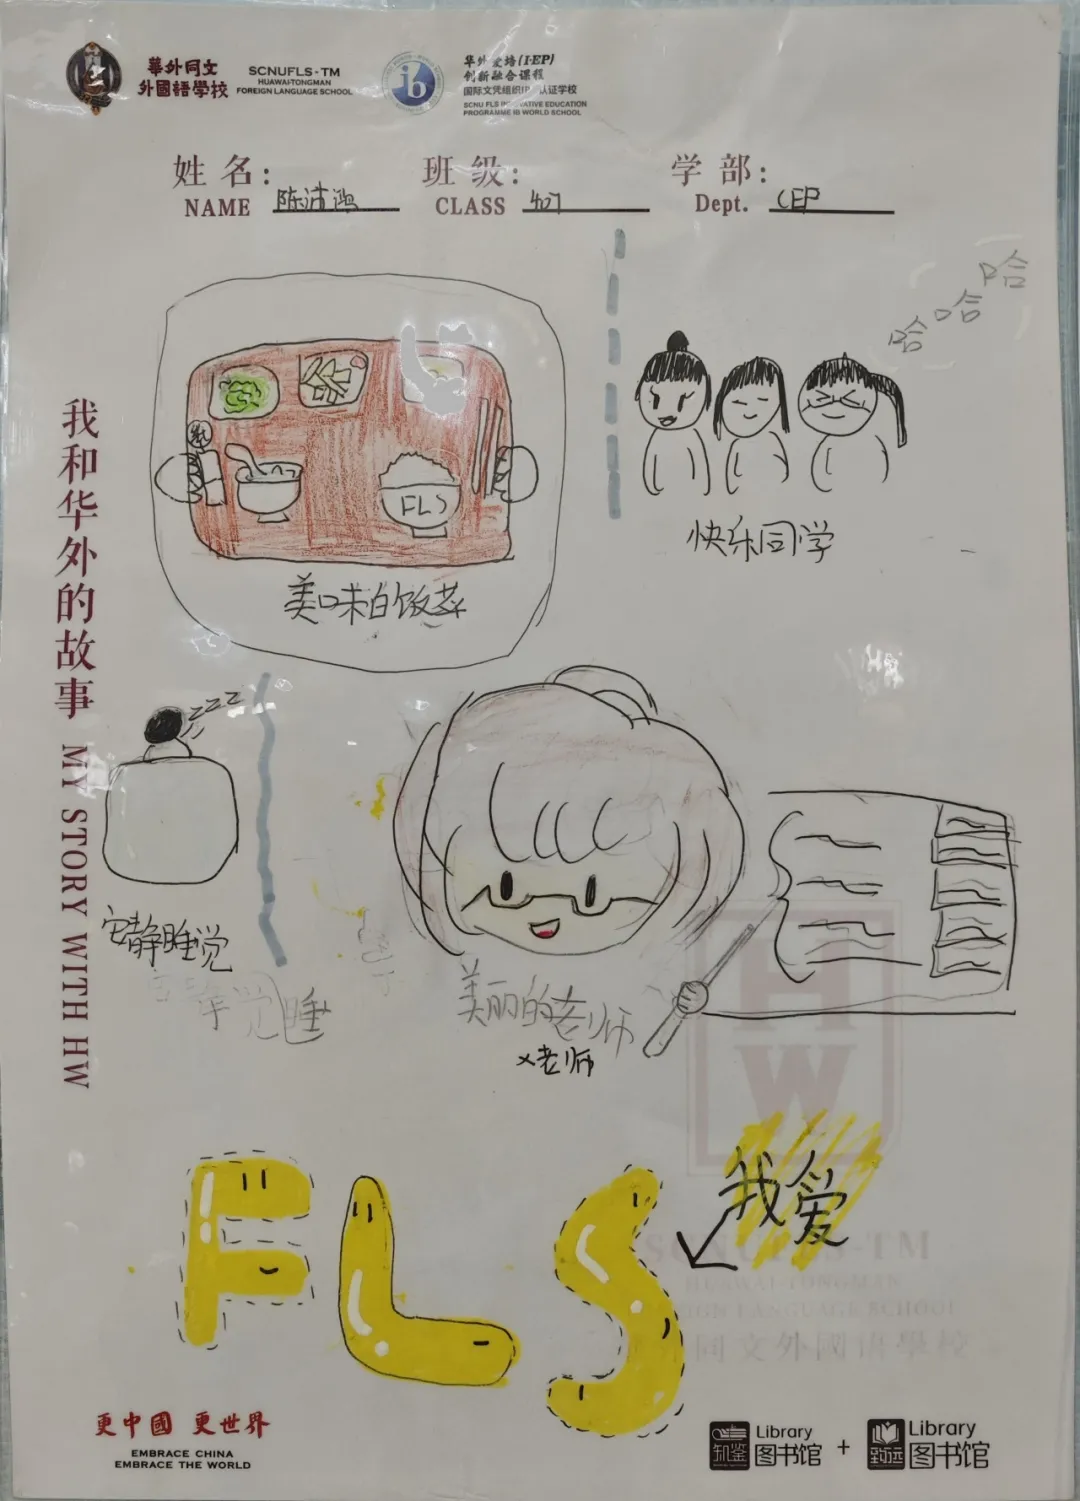 華外同文
外國語學校
SCNUFLS-TM
HUAWAI-TONGMAN
FOREIGN LANGUAGE SCHOOL
ib
华外爱培(I·EP)
创新融合课程
国际文凭组织IB 认证学校
SCNU FLS INNOVATIVE EDUCATION
PROGRAMME IB WORLD SCHOOL
姓名: 班级: 学部:
NAME 陈沛鸿 CLASS 407 Dept. CEP
哈哈哈
FLS
美味白饭菜
快乐同学
我和华外的故事 MY STORY WITH HW
zzz
安静睡觉
觉睡
美丽的老师
x老师
HW
我爱
FLS
SCNUFLS-TM
HUAWAI-TONGMAN
FOREIGN LANGUAGE SCHOOL
外同文外國语學校
更中國 更世界
EMBRACE CHINA
EMBRACE THE WORLD
知鉴 Library 图书馆 + 致远 Library 图书馆